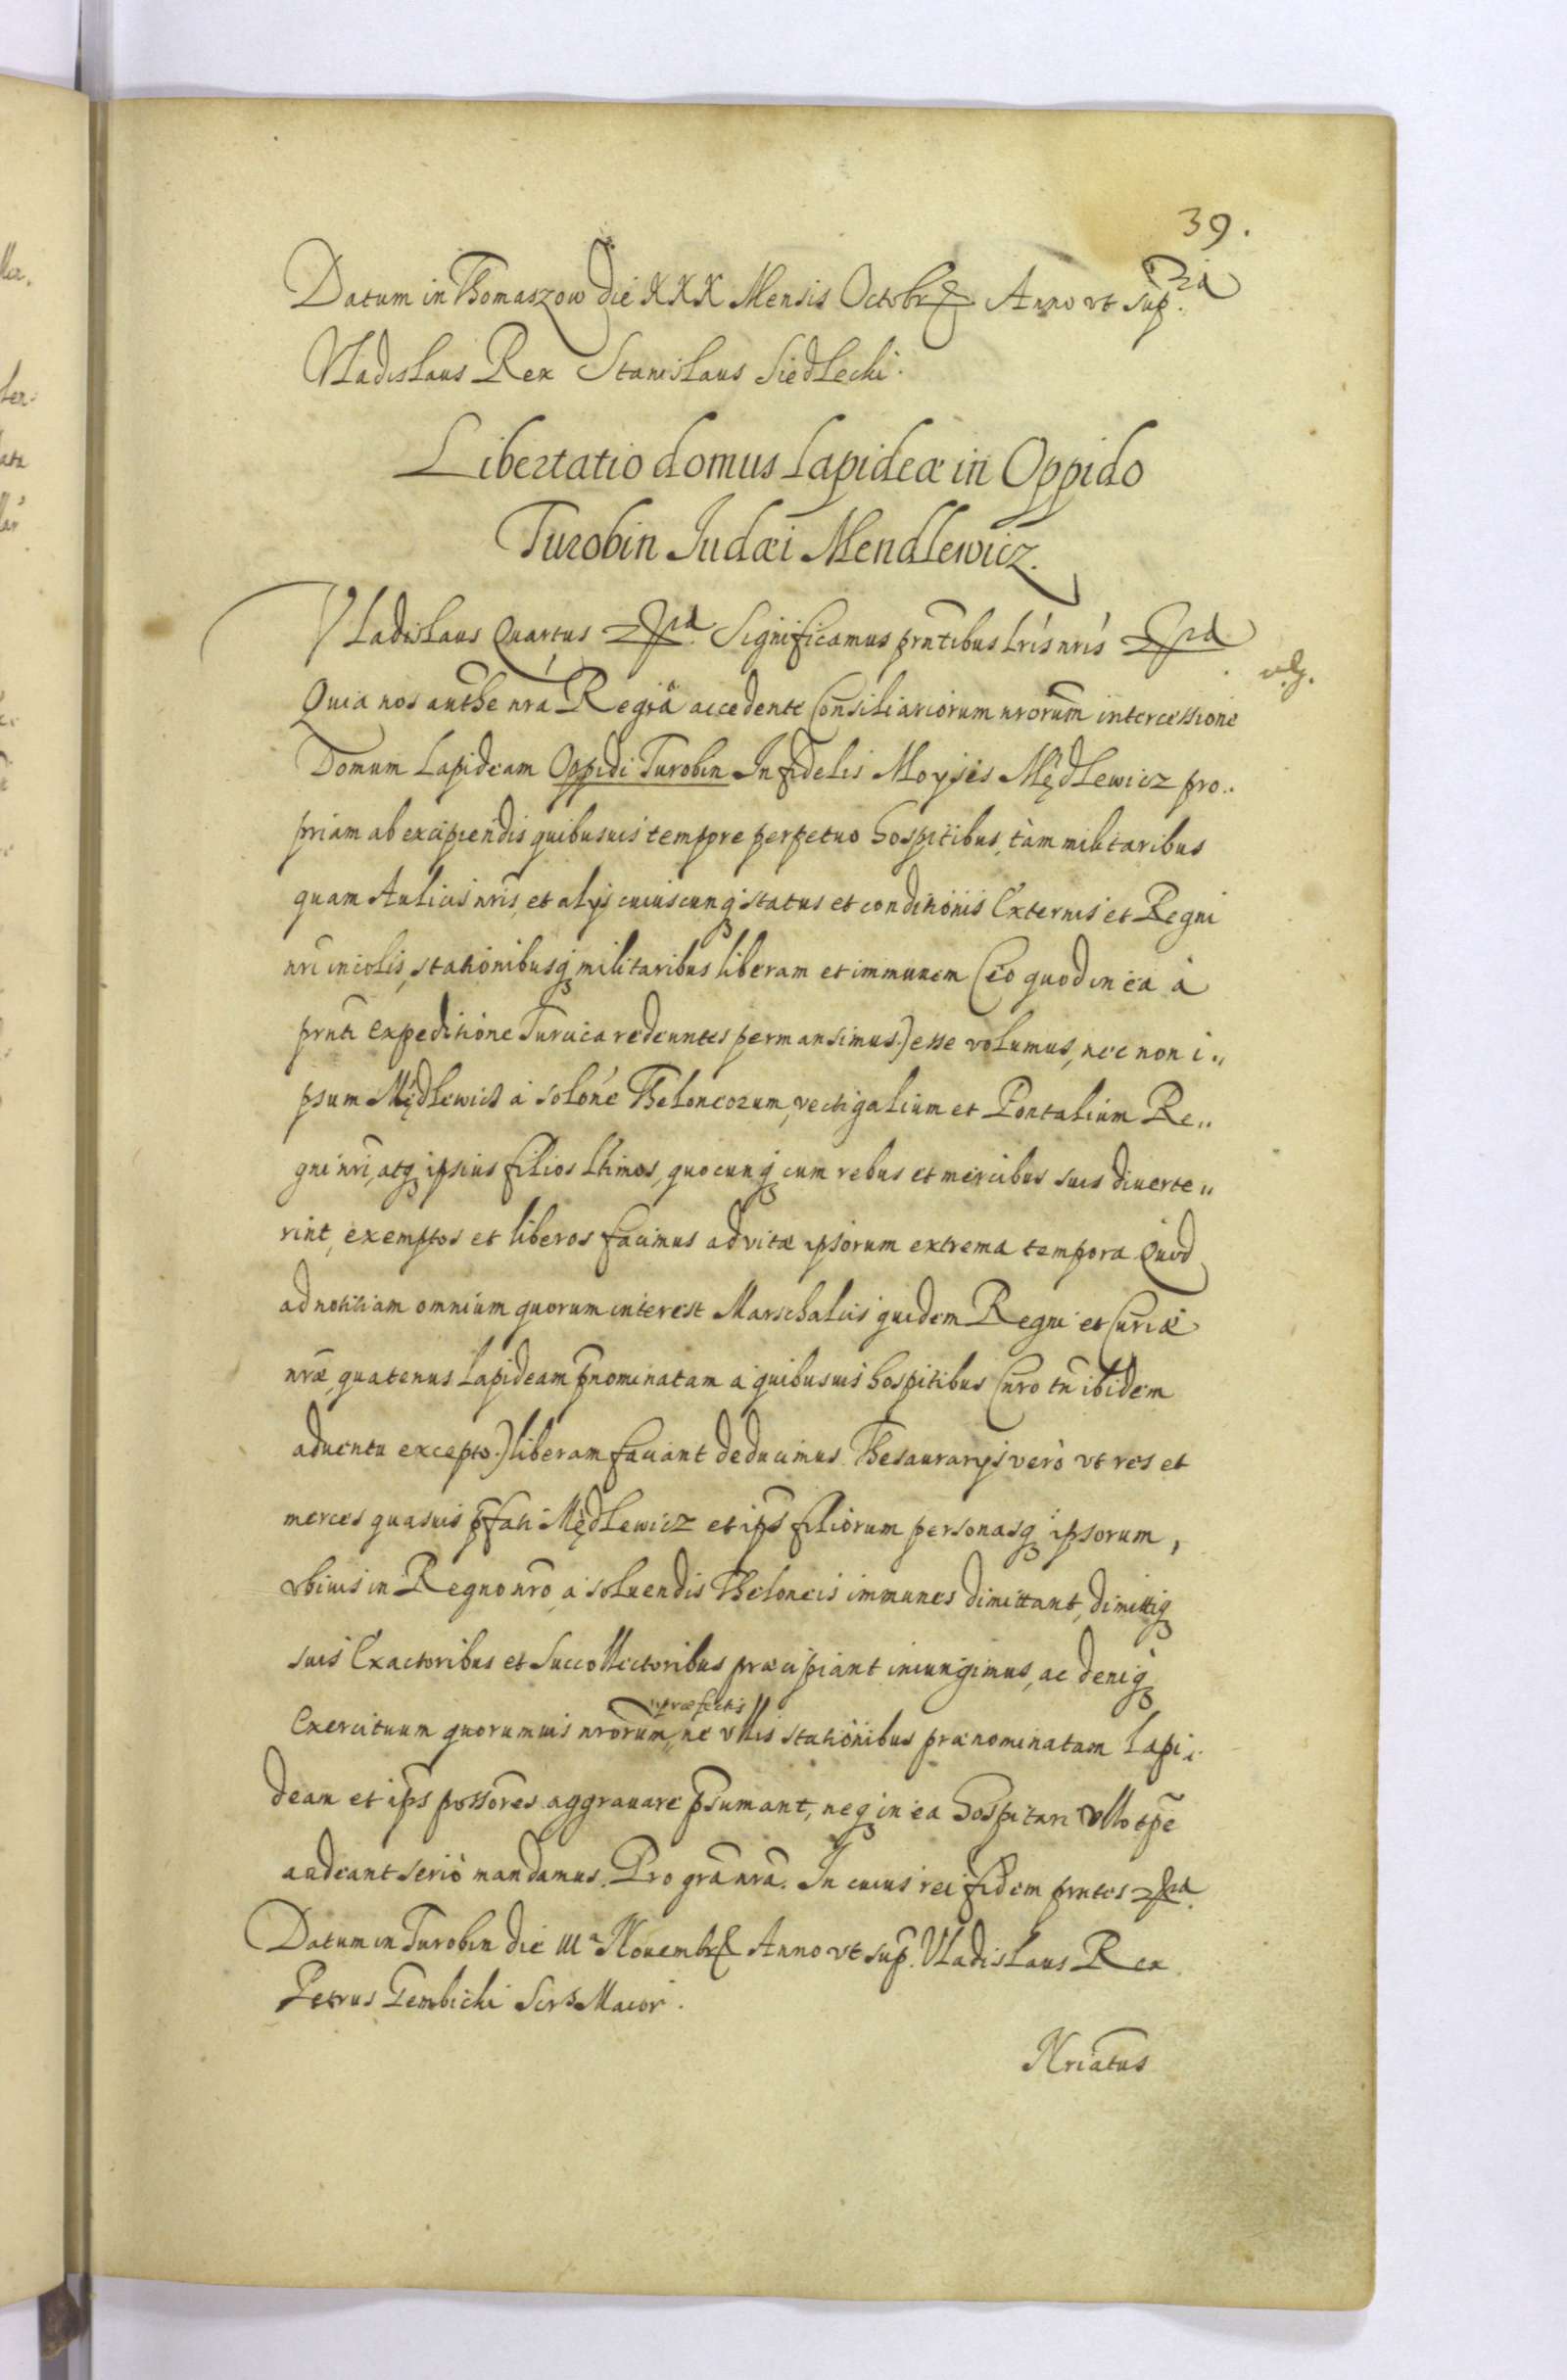 39.
Datum in Thomaszow die XXX Mensis Octobr Anno vt sup.ra
Vladislaus Rex Stanislaus Siedlecki.
Libertatio domus Lapideæ in Oppido
Turobin Iudæi Mendlewicz.
Vladislaus Quartus Significamus prntibus lris nris
Quia nos authe nra Regia accedente Consiliariorum nrorum intercessione
Domum Lapideam Oppidi Turobin Infidelis Moyses Mędlewicz pro..
priam ab excipiendis quibusuis tempore perpetuo hospitibus, tàm militaribus
quam Aulicis nris, et alys cuiuscunq status et conditionis Externis et Regni
nri incolis, stationibusq militaribus liberam et immunem (eo quod in ea à
prnti expeditione Turcica redeuntes permansimus) esse volumus, nec non i..
psum Mędlewicz à solone Theloneorum, vectigalium et Pontalium Re..
gni nri, atq ipsius filios lttimos, quocunq cum rebus et mercibus suis diuerte..
rint, exemptos et liberos facimus ad vitæ ipsorum extrema tempora Quod
ad notitiam omnium quorum interest Marschalcis quidem Regni et Curiæ
nræ, quatenus Lapideam pnominatam a quibusuis hospitibus (nro tn ibidem
aduentu excepto.) liberam faciant deducimus Thesaurarys verò vt res et
merces quasuis pfati Mędlewicz et ips filiorum personasq ipsorum,
vbiuis in Regno nro, à soluendis Theloneis immunes dimittant, dimittiq
suis Exactoribus et Succollectoribus præcipiant iniungimus, ac deniq
præfectis
Exercituum quorumuis nrorum, ne vllis stationibus prænominatam Lapi..
deam et ips possores aggrauare psumant, neq in ea hospitari vllo tpe
audeant seriò mandamus. Pro gra nra. In cuius rei fidem prntes
Datum in Turobin die IIIa Nouembr Anno vt sup. Vladislaus Rex
Petrus Gembicki Scrs Maior.
Nriatus